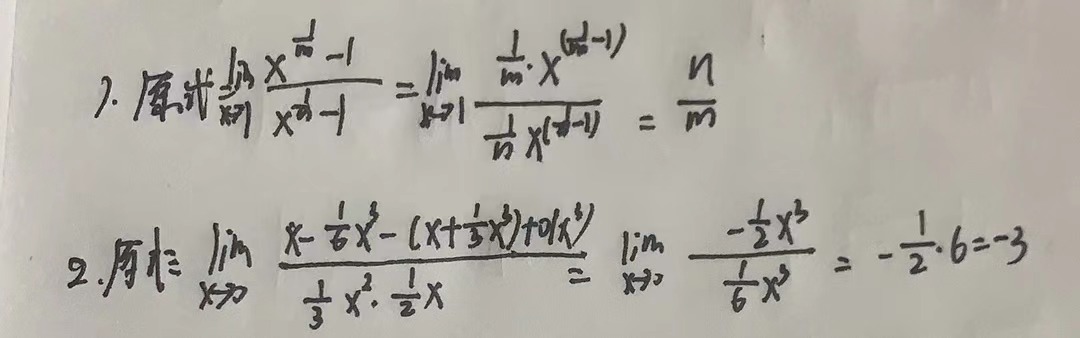 1. 原式 lim x→1 (x^(1/m) - 1)/(x^(1/n) - 1) = lim x→1 (1/m · x^(1/m - 1))/(1/n x^(1/n - 1)) = n/m
2. 原式= lim x→0 (x - 1/6 x³ - (x + 1/3 x³) + o(x³))/(1/3 x² · 1/2 x) = lim x→0 (-1/2 x³)/(1/6 x³) = -1/2 · 6 = -3